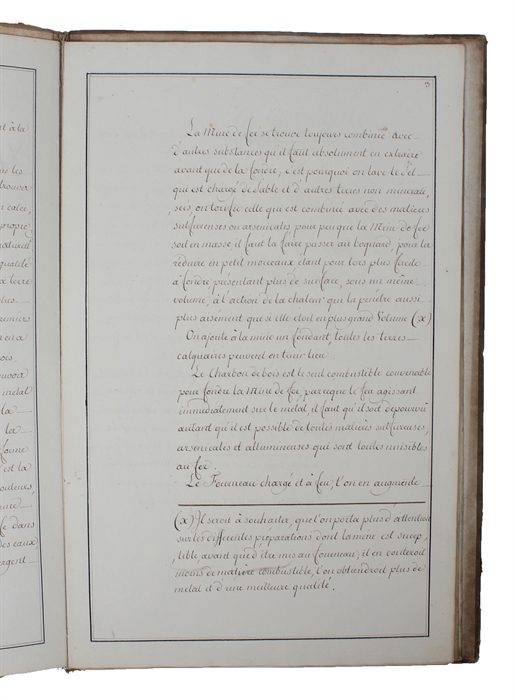 st à la
les
trouver
en calci,
propre
naturel
qualité
terre
plus
premiers
bois.
pouvoir
metal
la
la
forme
est la
couleurs,
dans
des eaux
argent
3
La Mine de fer se trouve toujours combinée avec
d'autres substances qu'il faut absolument en extraire
avant que de la fondre, c'est pourquoi on lave le Fel
qui est chargé de sable et d'autres terres non minerale,
on torrefie celle qui est combinée avec des matieres
sulfureuses ou arsenicales pour peu que la Mine de fer
soit en masse, il faut la faire passer au boquard, pour la
reduire en petit morceaux étant pour lors plus facile
à fondre présentant plus de surface, sous un même
volume, à l'action de la chaleur qui la penetre aussi
plus aisément que si elle étoit en plus grand Volume (x)
On ajoute à la mine un fondant, toutes les terres
calquaires peuvent en tenir lieu
Le Charbon de bois est le seul combustible convenable
pour fondre la Mine de fer, parceque le feu agissant
immediatement sur le metal, il faut qu'il soit depourvû
autant qu'il est possible de toutes matieres sulfureuses,
arsenicales et allumineuses qui sont toutes nuisibles
au fer.
Le Fourneau chargé et à feu, l'on en augmente
(x) Il seroit à souhaiter, que l'on porta plus d'attention
sur les differentes préparations dont la mine est suscep
tible, avant que d'être mis au fourneau, il en couteroit
moins de matiere combustible, l'on obtiendroit plus de
metal et d'une meilleure qualité.